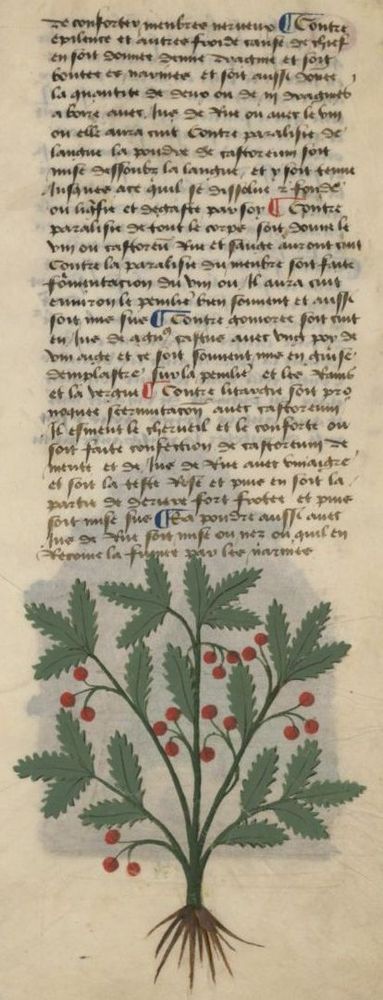 De conforter menbres nerveux ¶ Contre
epilence et autres froide cause de chief
en soit donnee demie dragme et soit
boutee es narines et soit aussi donee
la quantite de deux ou de iii dragmes
a boire avec Jus de Rue ou avec le vin
ou elle aura cuit Contre paralisie de
langue la pouldre de castoreum soit
mise dessoubz la langue, et y soit tenue
Jusques ace quil se dissolve & fonde
ou liqfie et degaste par soy ¶ Contre
paralisie de tout le corps soit donne le
vin ou castoreu Rue et sauge auront cuit
Contre la paralisie du menbre soit faite
fomentacion du vin ou Il aura cuit
environ le penlie bien souvent et aussi
soit mis sus ¶ Contre gomoree soit cuit
en Jus de agn9 castus avec ung poy de
vin aigre et ce soit souvent mis en guise
demplastre sur la penlie et les Rains
et la vergue ¶ Contre litargie soit pro
voquee sternutacon avec castoreum
Il esmeut le cherveil et le conforte ou
soit faite confection de castoreum de
mente et de Jus de Rue avec vinaigre
et soit la teste Rese et puis en soit la
partie de deriere fort frotee et puis
soit mise sus ¶ La pouldre aussi avec
Jus de Rue soit mise ou nez ou quil en
Recoive la fumee par les narines